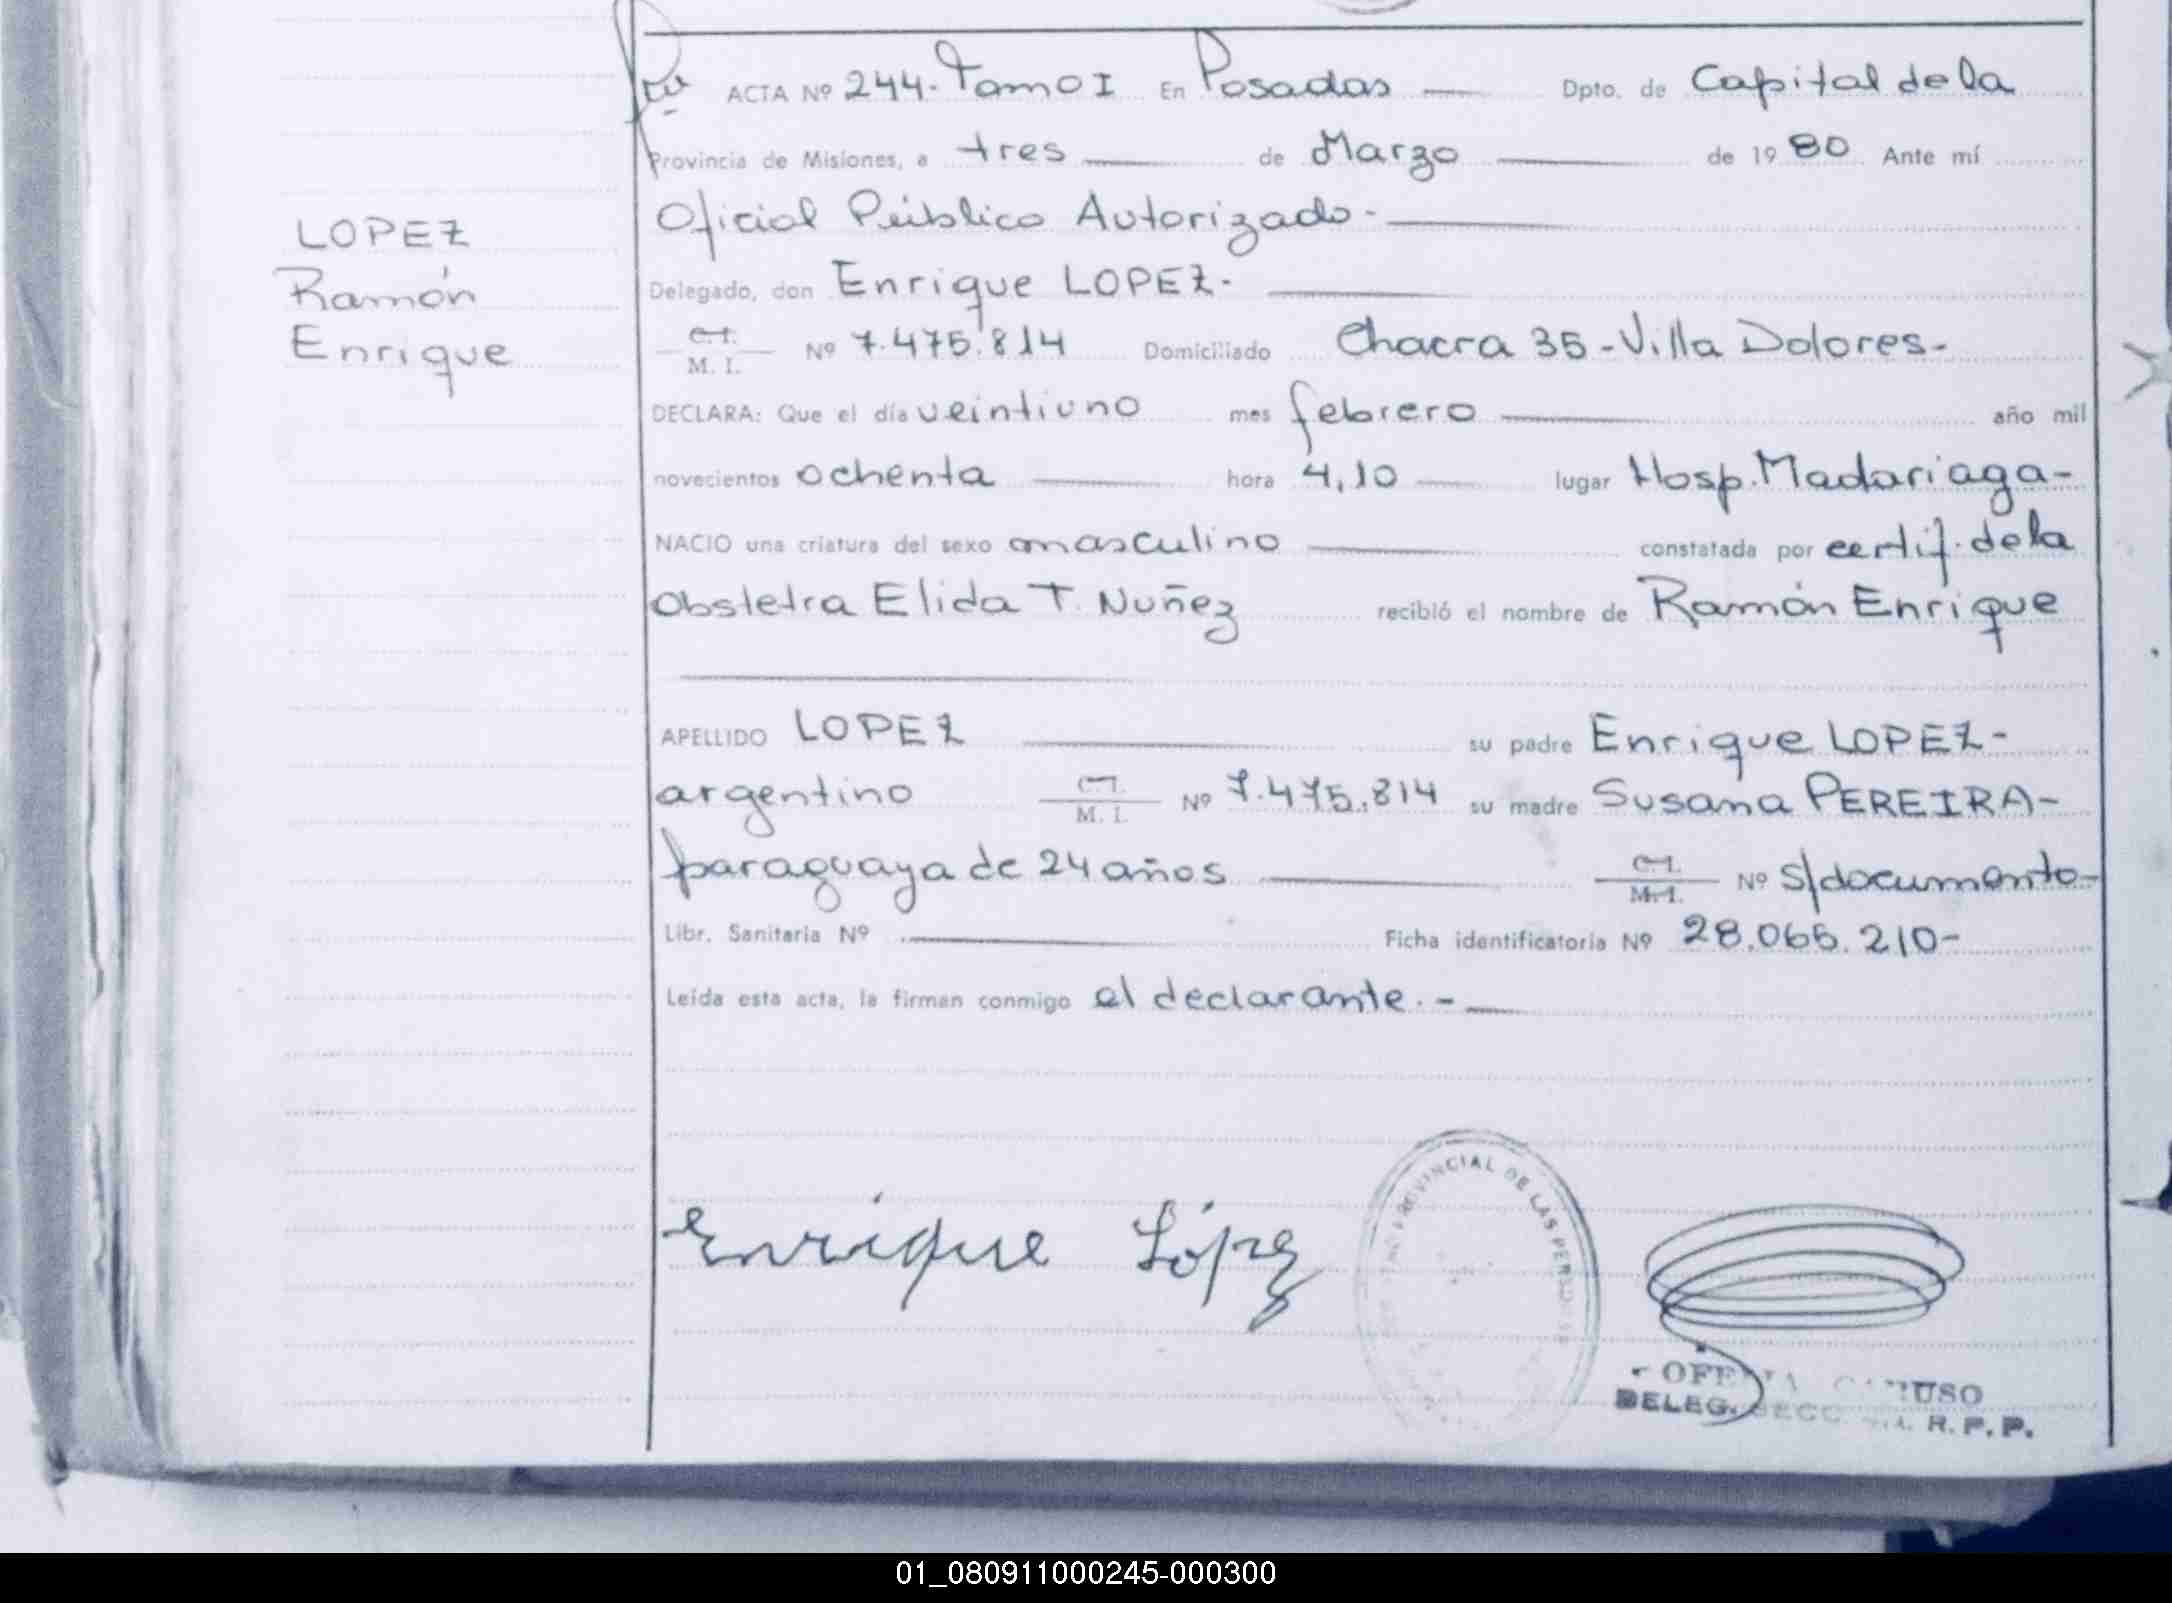 ACTA Nº 244. Tomo I En Posadas Dpto. de Capital de la
Provincia de Misiones, a tres de Marzo de 19 80 Ante mí
Oficial Público Autorizado-
LOPEZ
Ramón
Enrique
Delegado, don Enrique LOPEZ-
C.I.
M. I. Nº 7.475.814 Domiciliado Chacra 35-Villa Dolores-
DECLARA: Que el día veintiuno mes febrero año mil
novecientos ochenta hora 4,10 lugar Hosp. Madariaga-
NACIO una criatura del sexo masculino constatada por certif. de la
obstetra Elida T. Nuñez recibió el nombre de Ramón Enrique
APELLIDO LOPEZ su padre Enrique LOPEZ-
argentino C.I.
M. I. Nº 7.475.814 su madre Susana PEREIRA-
paraguaya de 24 años C.I.
M.I. Nº s/documento-
Libr. Sanitaria Nº Ficha identificatoria Nº 28.065.210-
Leída esta acta, la firman conmigo el declarante.-
Enrique López
PROVINCIAL DE LAS PERSONAS
DELEG. SECC. R. P. P.
01_080911000245-000300